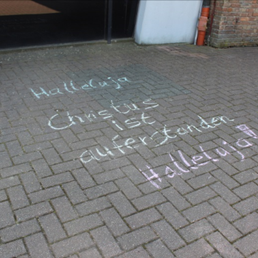 Halleluja
Christus
ist
auferstanden
Halleluja!